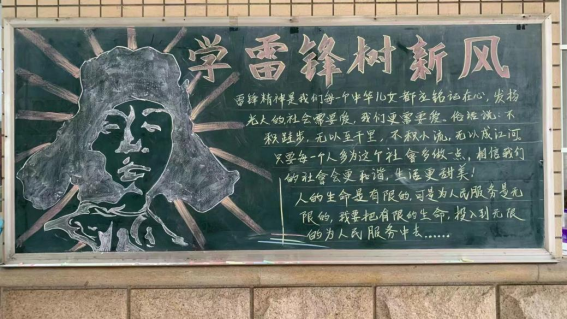 学雷锋树新风
雷锋精神是我们每个中华儿女都应铭记在心，发扬
光大的社会需要爱，我们更需要爱，俗话说：不
积跬步，无以至千里，不积小流，无以成江河
只要每一个人多为这个社會多做一点，相信我们
的社會会更和谐，生活更甜美！
人的生命是有限的，可是为人民服务是无
限的，我要把有限的生命，投入到无限
的为人民服务中去……